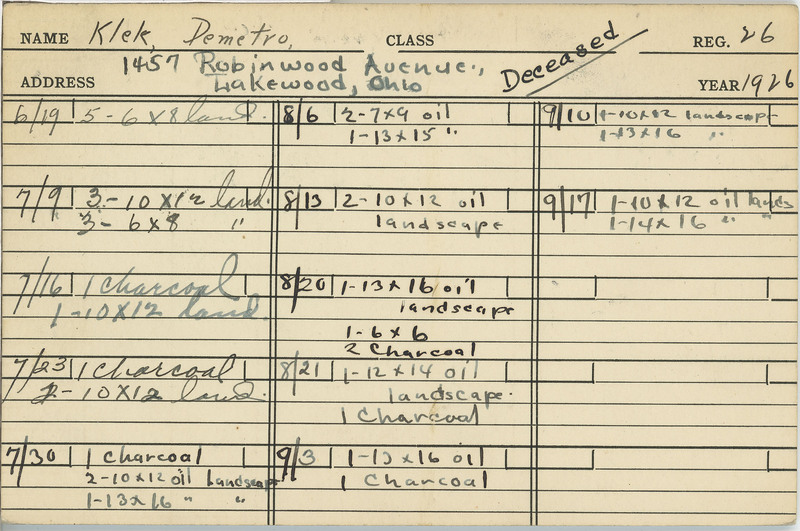 NAME Klek, Demetro, CLASS REG. 26
Deceased
ADDRESS 1457 Robinwood Avenue.,
Lakewood, Ohio YEAR 1926
6/19 5 - 6 x 8 land.
7/9 3 - 10 x 12 land.
3 - 6 x 8 "
7/16 1 Charcoal
1 - 10 x 12 land.
7/23 1 Charcoal
2 - 10 x 12 land.
7/30 1 Charcoal
2-10x12 oil landscape
1-13x16 " "
8/6 2-7x9 oil
1-13x15 "
8/13 2-10x12 oil
landscape
8/20 1-13x16 oil
landscape
1-6x6
2 Charcoal
8/21 1-12x14 oil
landscape.
1 Charcoal
9/3 1-13x16 oil
1 Charcoal
9/10 1-10x12 landscape
1-13x16 "
9/17 1-10x12 oil lands
1-14x16 " "